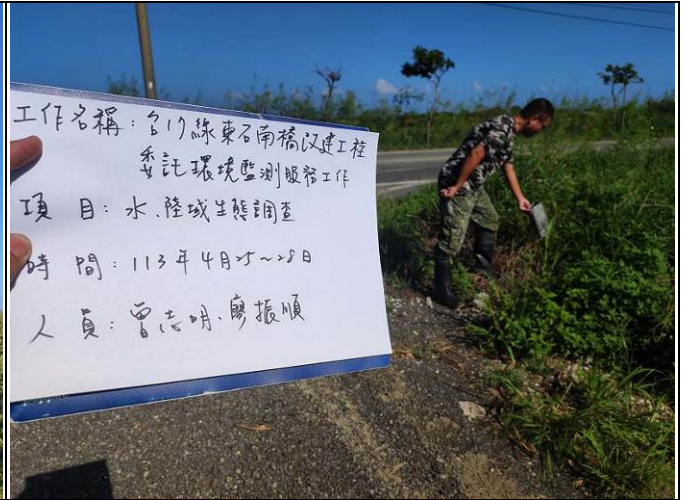 工作名稱：台17線東石南橋改建工程
委託環境監測服務工作
項 目：水、陸域生態調查
時 間：113年4月25~28日
人 員：曾志明、廖振順